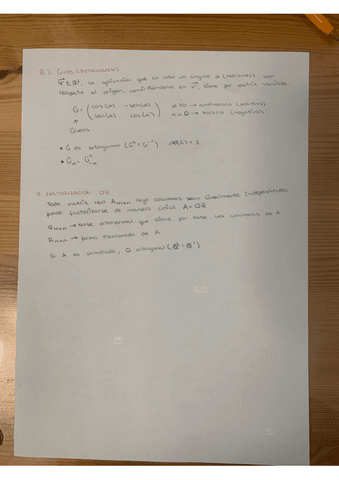 8.2 GIROS (ROTACIONES)
v⃗ ∈ ℝ², la aplicación que lo rota un ángulo α (radianes) con
respecto al origen, convirtiéndolo en v⃗', tiene por matriz asociada
G = (cos(α) -sen(α)
sen(α) cos(α))
α > 0 → antihorario (positivo)
α < 0 → horario (negativo)
Giros
• G es ortogonal (Gᵗ = G⁻¹) det(G) = 1
9. FACTORIZACIÓN QR
Toda matriz real Amxn cuyas columnas sean linealmente independientes,
puede factorizarse de manera única: A = QR
Qmxn → base ortonormal que tiene por base las columnas de A
Rnxn → forma escalonada de A
Si A es cuadrada, Q ortogonal